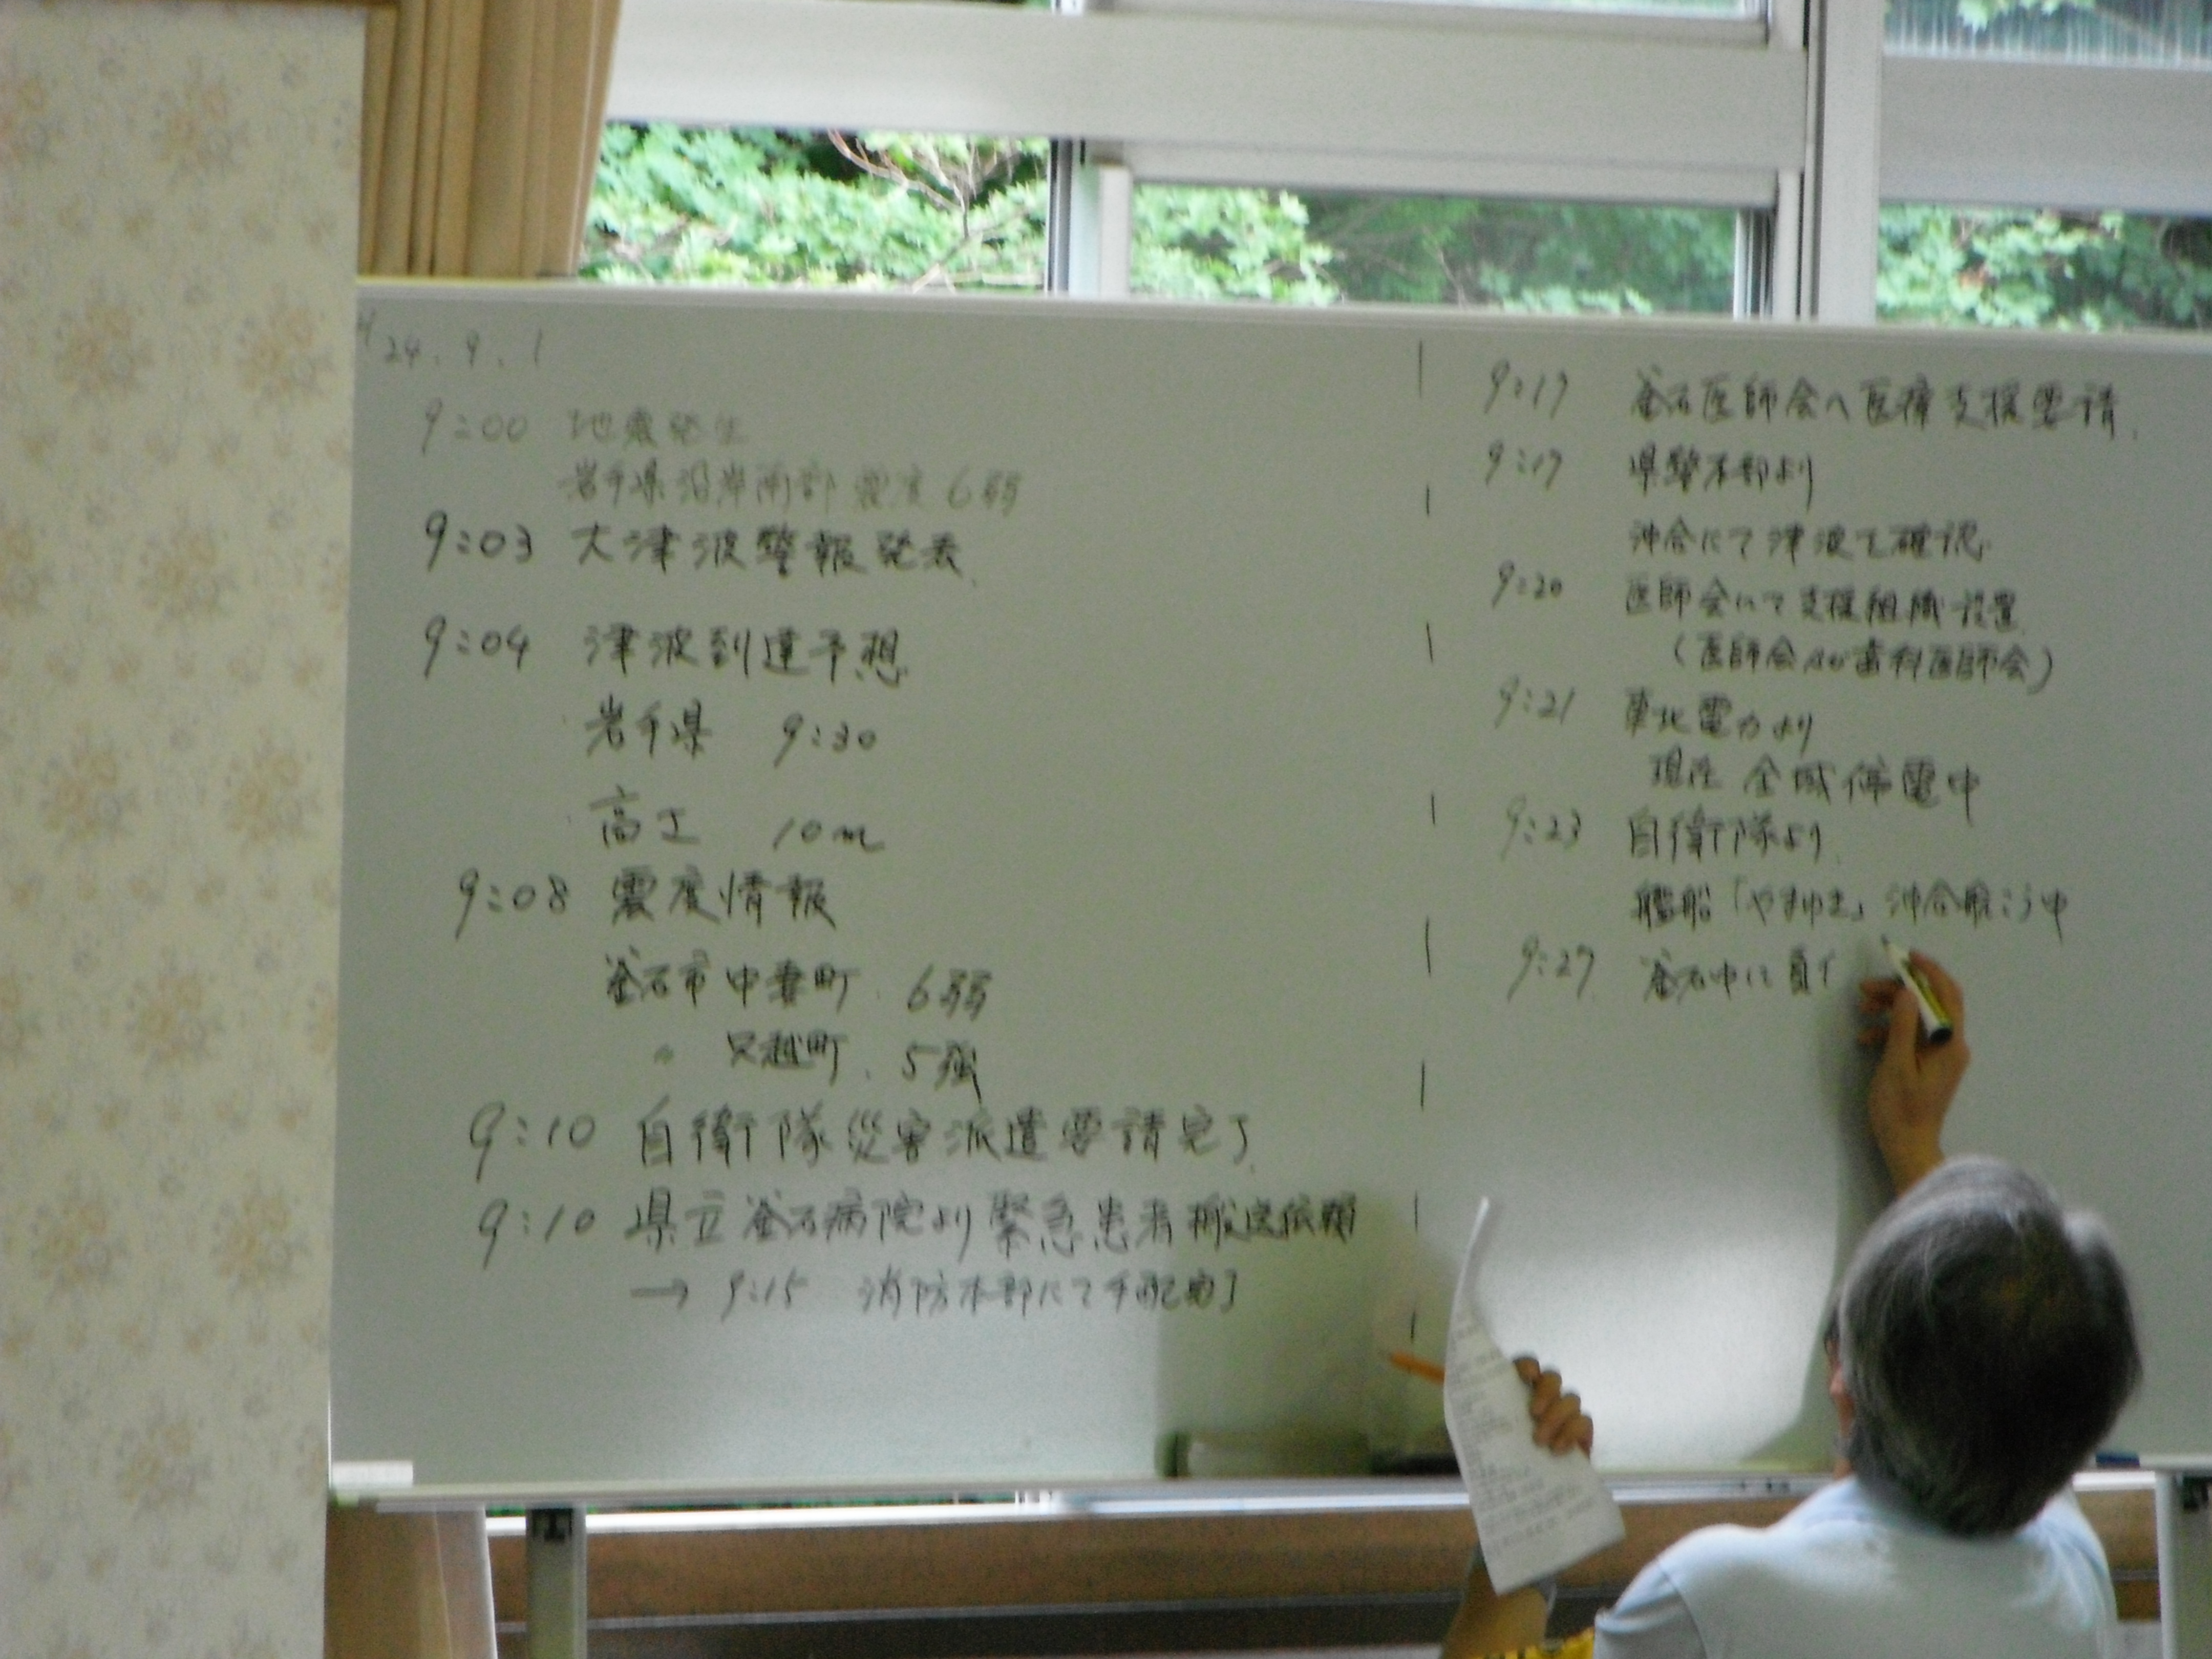 H24.9.1
9:00 地震発生
岩手県沿岸南部 震度 6弱
9:03 大津波警報発表
9:04 津波到達予想
岩手県 9:30
高さ 10m
9:08 震度情報
釜石市中妻町 6弱
〃 只越町 5強
9:10 自衛隊災害派遣要請完了
9:10 県立釜石病院より緊急患者搬送依頼
→ 9:15 消防本部にて手配完了
9:17 釜石医師会へ医療支援要請
9:19 県警本部より
沖合にて津波を確認
9:20 医師会にて支援組織設置
(医師会及び歯科医師会)
9:21 東北電力より
現在 全域停電中
9:23 自衛隊より
艦船「やまゆき」沖合航こう中
9:27 釜石中に